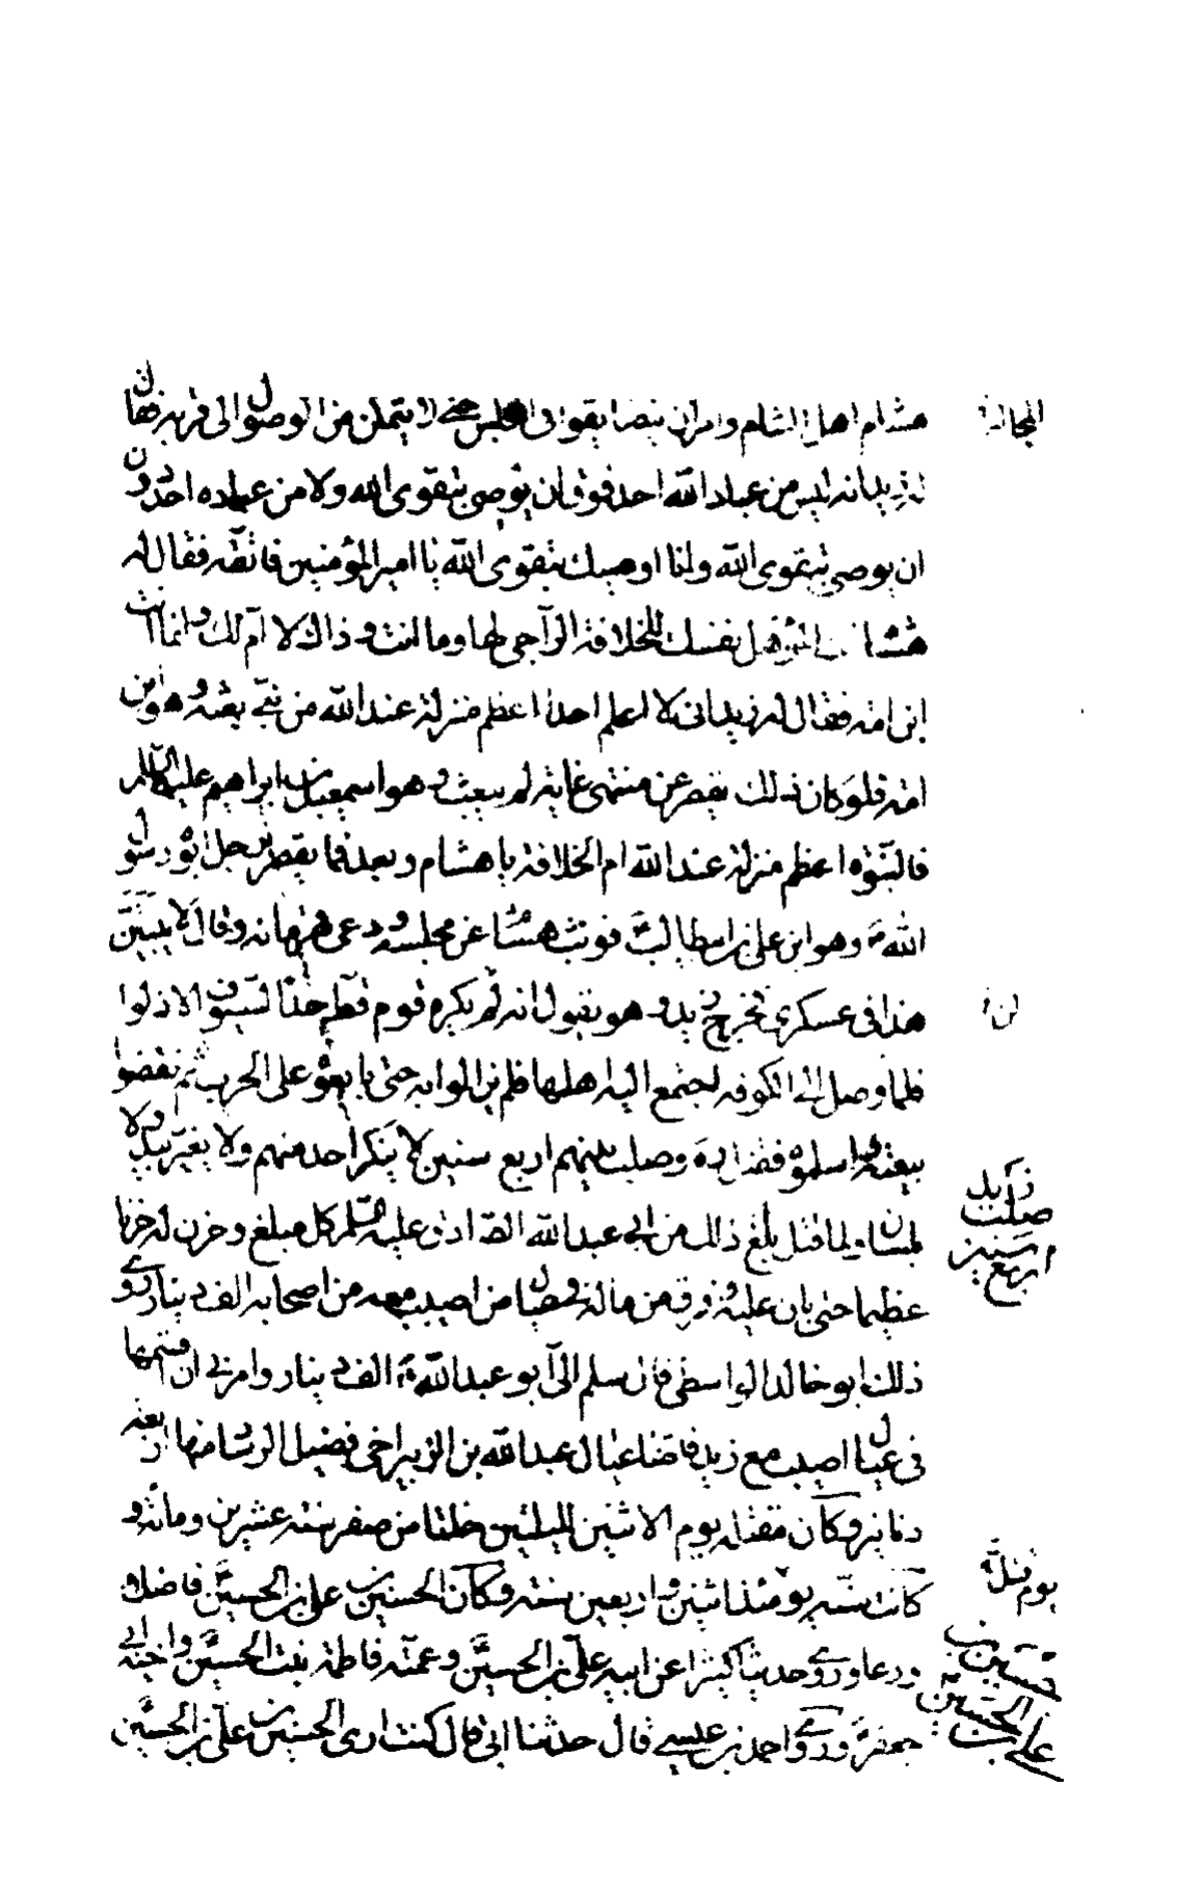 هشام اهل الشام وامر ان يتضايقوا فى المجلس حتى لا يتمكن من الوصول الى قربه فقال
له زيد انه ليس من عباد الله احد فوق ان يوصى بتقوى الله ولا من عباده احد دون
ان يوصى بتقوى الله وانا اوصيك بتقوى الله يا امير المؤمنين فاتقه فقال له
هشام انت المؤهل نفسك للخلافة الراجى لها وما انت وذاك لا ام لك وانما انت
ابن امة فقال له زيد انى لا اعلم احدا اعظم منزلة عند الله من نبى بعثه وهو ابن
امة فلو كان ذلك يقصر عن منتهى غاية لم يبعث وهو اسمعيل بن ابراهيم عليهما السلام
فالنبوة اعظم منزلة عند الله ام الخلافة يا هشام وبعد فما يقصر برجل ابوه رسول
الله ص وهو ابن على بن ابيطالب فوثب هشام عن مجلسه ودعى قهرمانه وقال لا يبيتن
هذا فى عسكرى فخرج زيد وهو يقول انه لم يكره قوم قط حد السيوف الا ذلوا
فلما وصل الى الكوفه اجتمع اليه اهلها فلم يزالوا به حتى بايعوه على الحرب ثم نقضوا
بيعته واسلموه فقتل ره وصلب بينهم اربع سنين لا ينكر احد منهم ولا يغير بيد ولا
بلسان ولما قتل بلغ ذلك من ابى عبد الله الصادق عليه السلم كل مبلغ وحزن له حزنا
عظيما حتى بان عليه وفرق من ماله فى عيال من اصيب معه من اصحابه الف دينار روى
ذلك ابو خالد الواسطى قال سلم الى ابو عبد الله ع الف دينار وامرنى ان اقسمها
فى عيال من اصيب مع زيد فاصاب عيال عبد الله بن الزبير اخى فضيل الرسان منها اربعة
دنانير وكان مقتله يوم الاثنين لليلتين خلتا من صفر سنه عشرين ومائة و
كانت سنه يومئذ اثنين واربعين سنه وكان الحسين بن على بن الحسين فاضلا و
ورعا وروى حديثا كثيرا عن ابيه على بن الحسين وعمته فاطمة بنت الحسين واخيه ابى
جعفر وروى احمد بن عيسى قال حدثنا ابى قال كنت ارى الحسين بن على بن الحسين
زيد
صلب
اربع سنين
يوم قتله
حسين بن
على بن الحسين